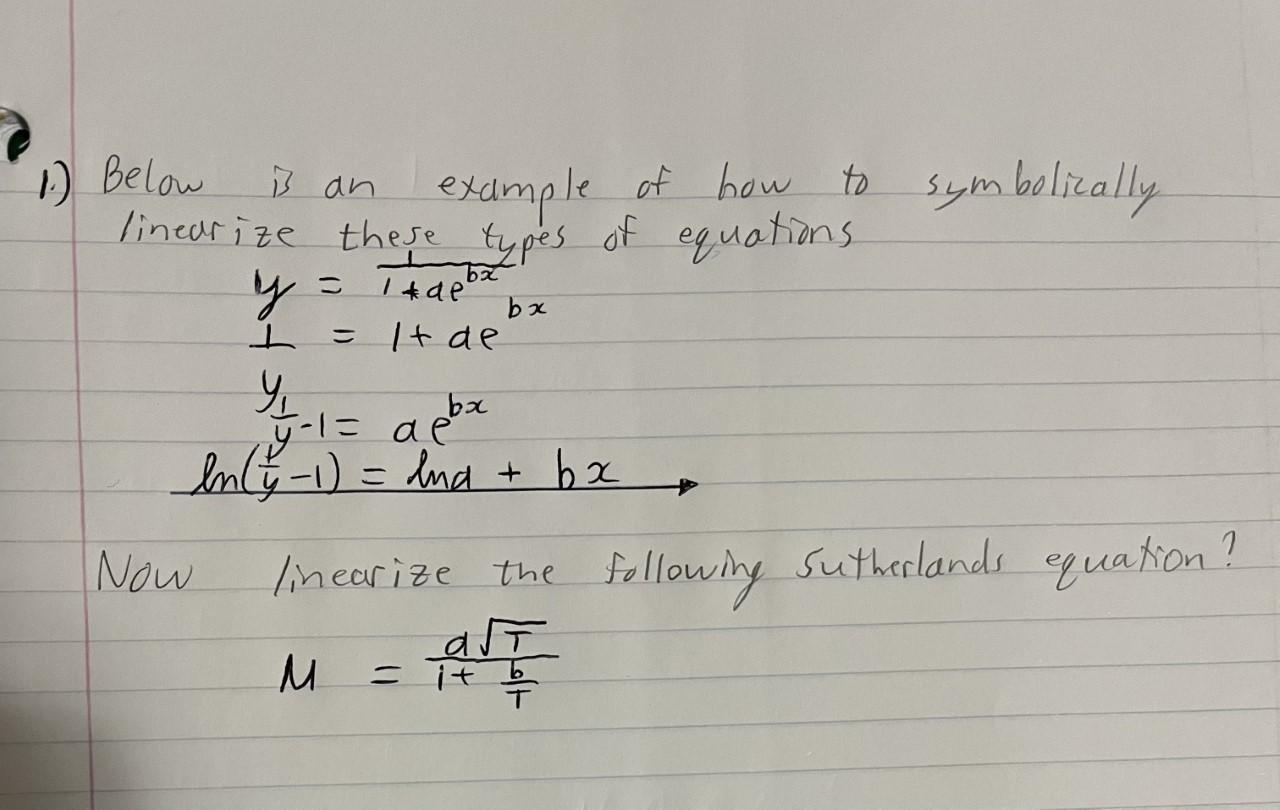 1.) Below is an example of how to symbolically
linearize these types of equations
y = 1/(1+ae^bx)
1/y = 1+ ae^bx
1/y -1 = ae^bx
ln(1/y -1) = lna + bx
Now linearize the following Sutherlands equation?
M = a√T/(1+ b/T)